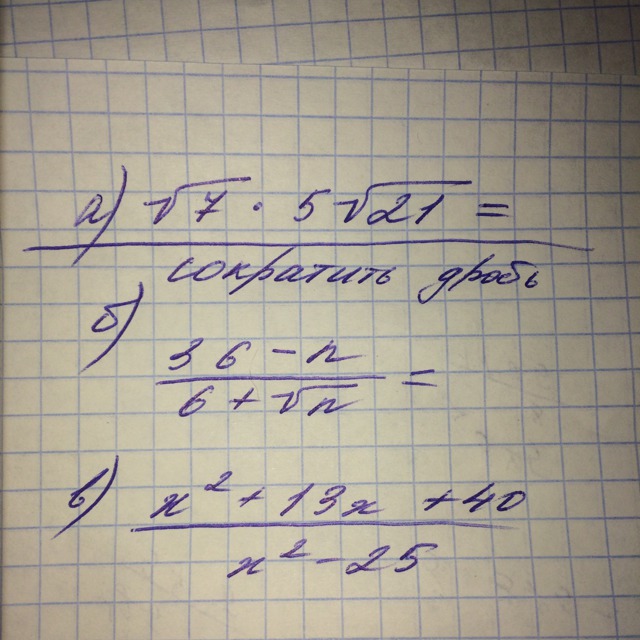 а) √7 · 5√21 =
сократить дробь
б)
36 - n
6 + √n =
в) x² + 13x + 40
x² - 25